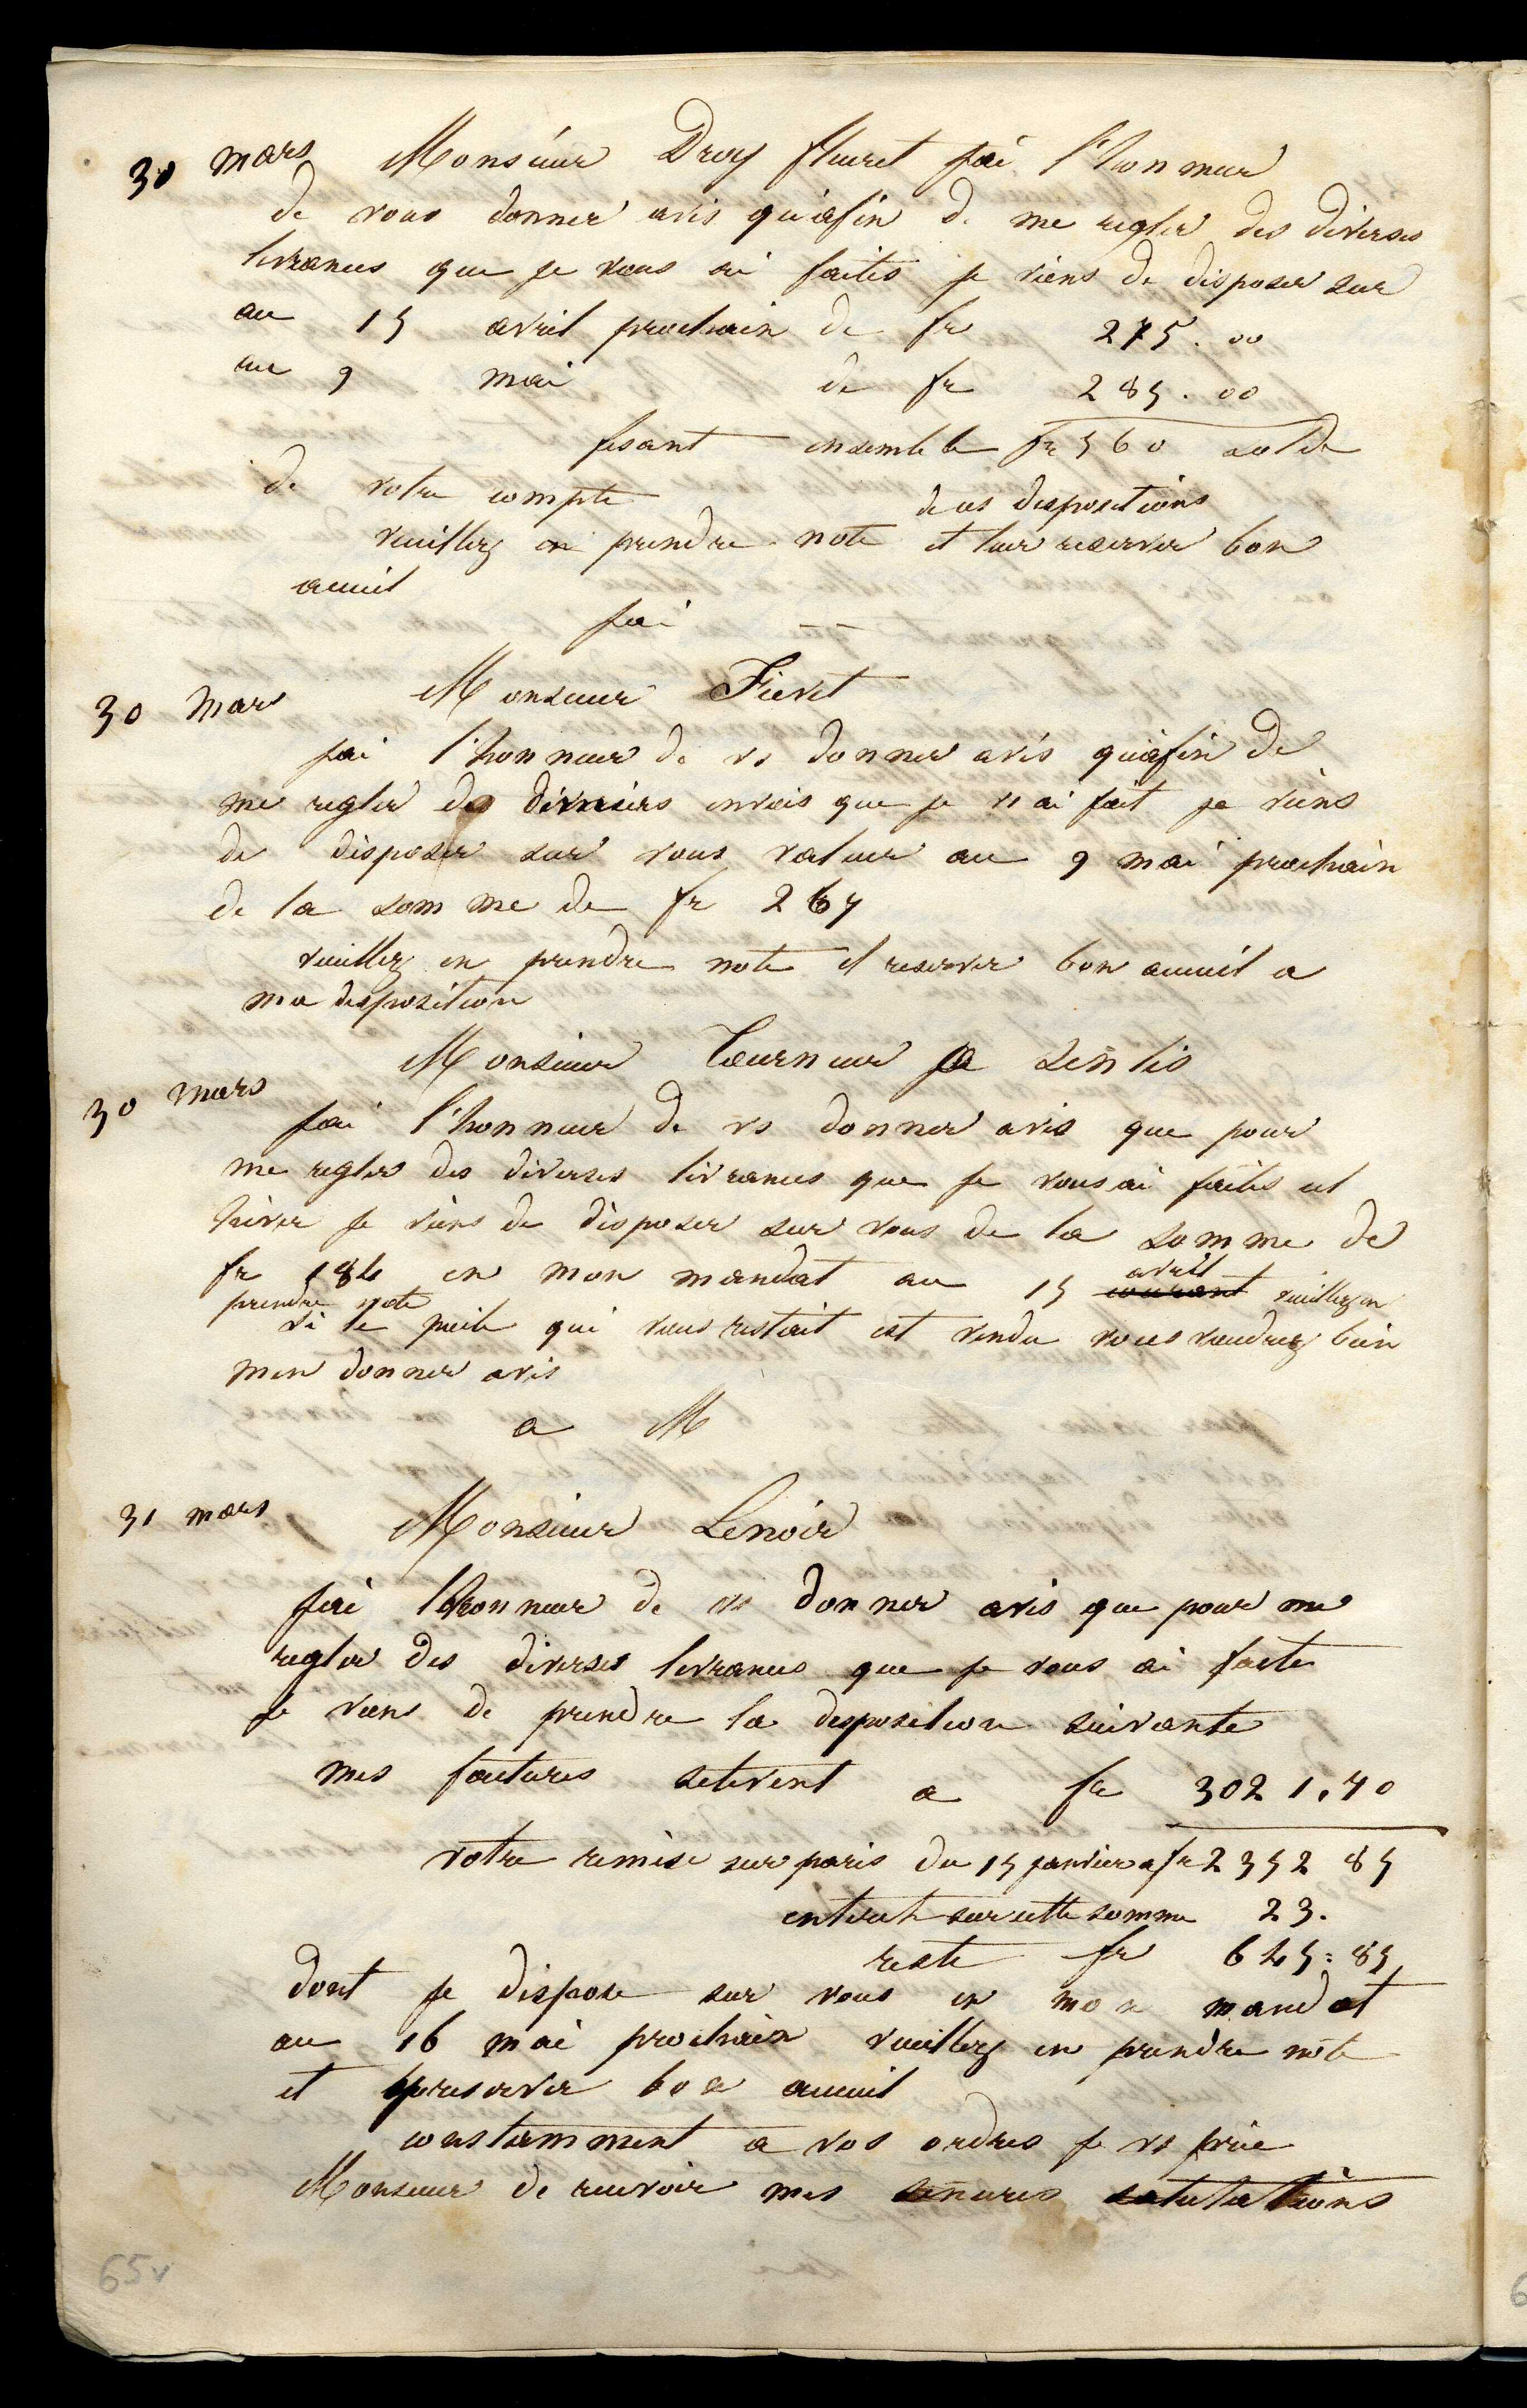 30 mars Monsieur Droy fleuret jai l'honneur
de vous donner avis qu'afin de me regler des diverses
livrances que je vous ai faites je viens de disposer sur
au 15 avril prochain de fr 275.00
au 9 mai de fr 285.00
fesant ensemble fr 560 solde
de votre compte
de ces dispositions
veuillez en prendre note et leur reserver bon
acueil
jai --
30 Mars Monsieur Fievet
jai l'honneur de vs donner avis qu'afin de
me regler des derniers envois que je vs ai fait je viens
de disposer sur vous valeur au 9 mai prochain
de la somme de fr 267
veuillez en prendre note et reserver bon acueil a
ma disposition
Monsieur Tourneur a Senlis
30 mars
jai l'honneur de vs donner avis que pour
me regler des diverses livrances que je vous ai faites cet
hiver je viens de disposer sur vous de la somme de
avril
fr 184 en mon mandat au 15 courant veuillez en
prendre note
si le poile qui vous restait est vendu vous voudrez bien
men donner avis
a M
31 mars Monsieur Lenoir
jai l'honneur de vs donner avis que pour me
regler des diverses livrances que je vous ai faite
je viens de prendre la disposition suivante
mes factures selevent a fr 3021.70
votre remise sur paris du 15 janvier a fr 2352 85
enteret sur cette somme 23.
reste fr 645:85
dont je dispose sur vous en mon mandat
au 16 mai prochain veuillez en prendre note
et reserver bon acueil
constamment a vos ordres je vs prie
Monsieur de recevoir mes sinceres salutations
65v